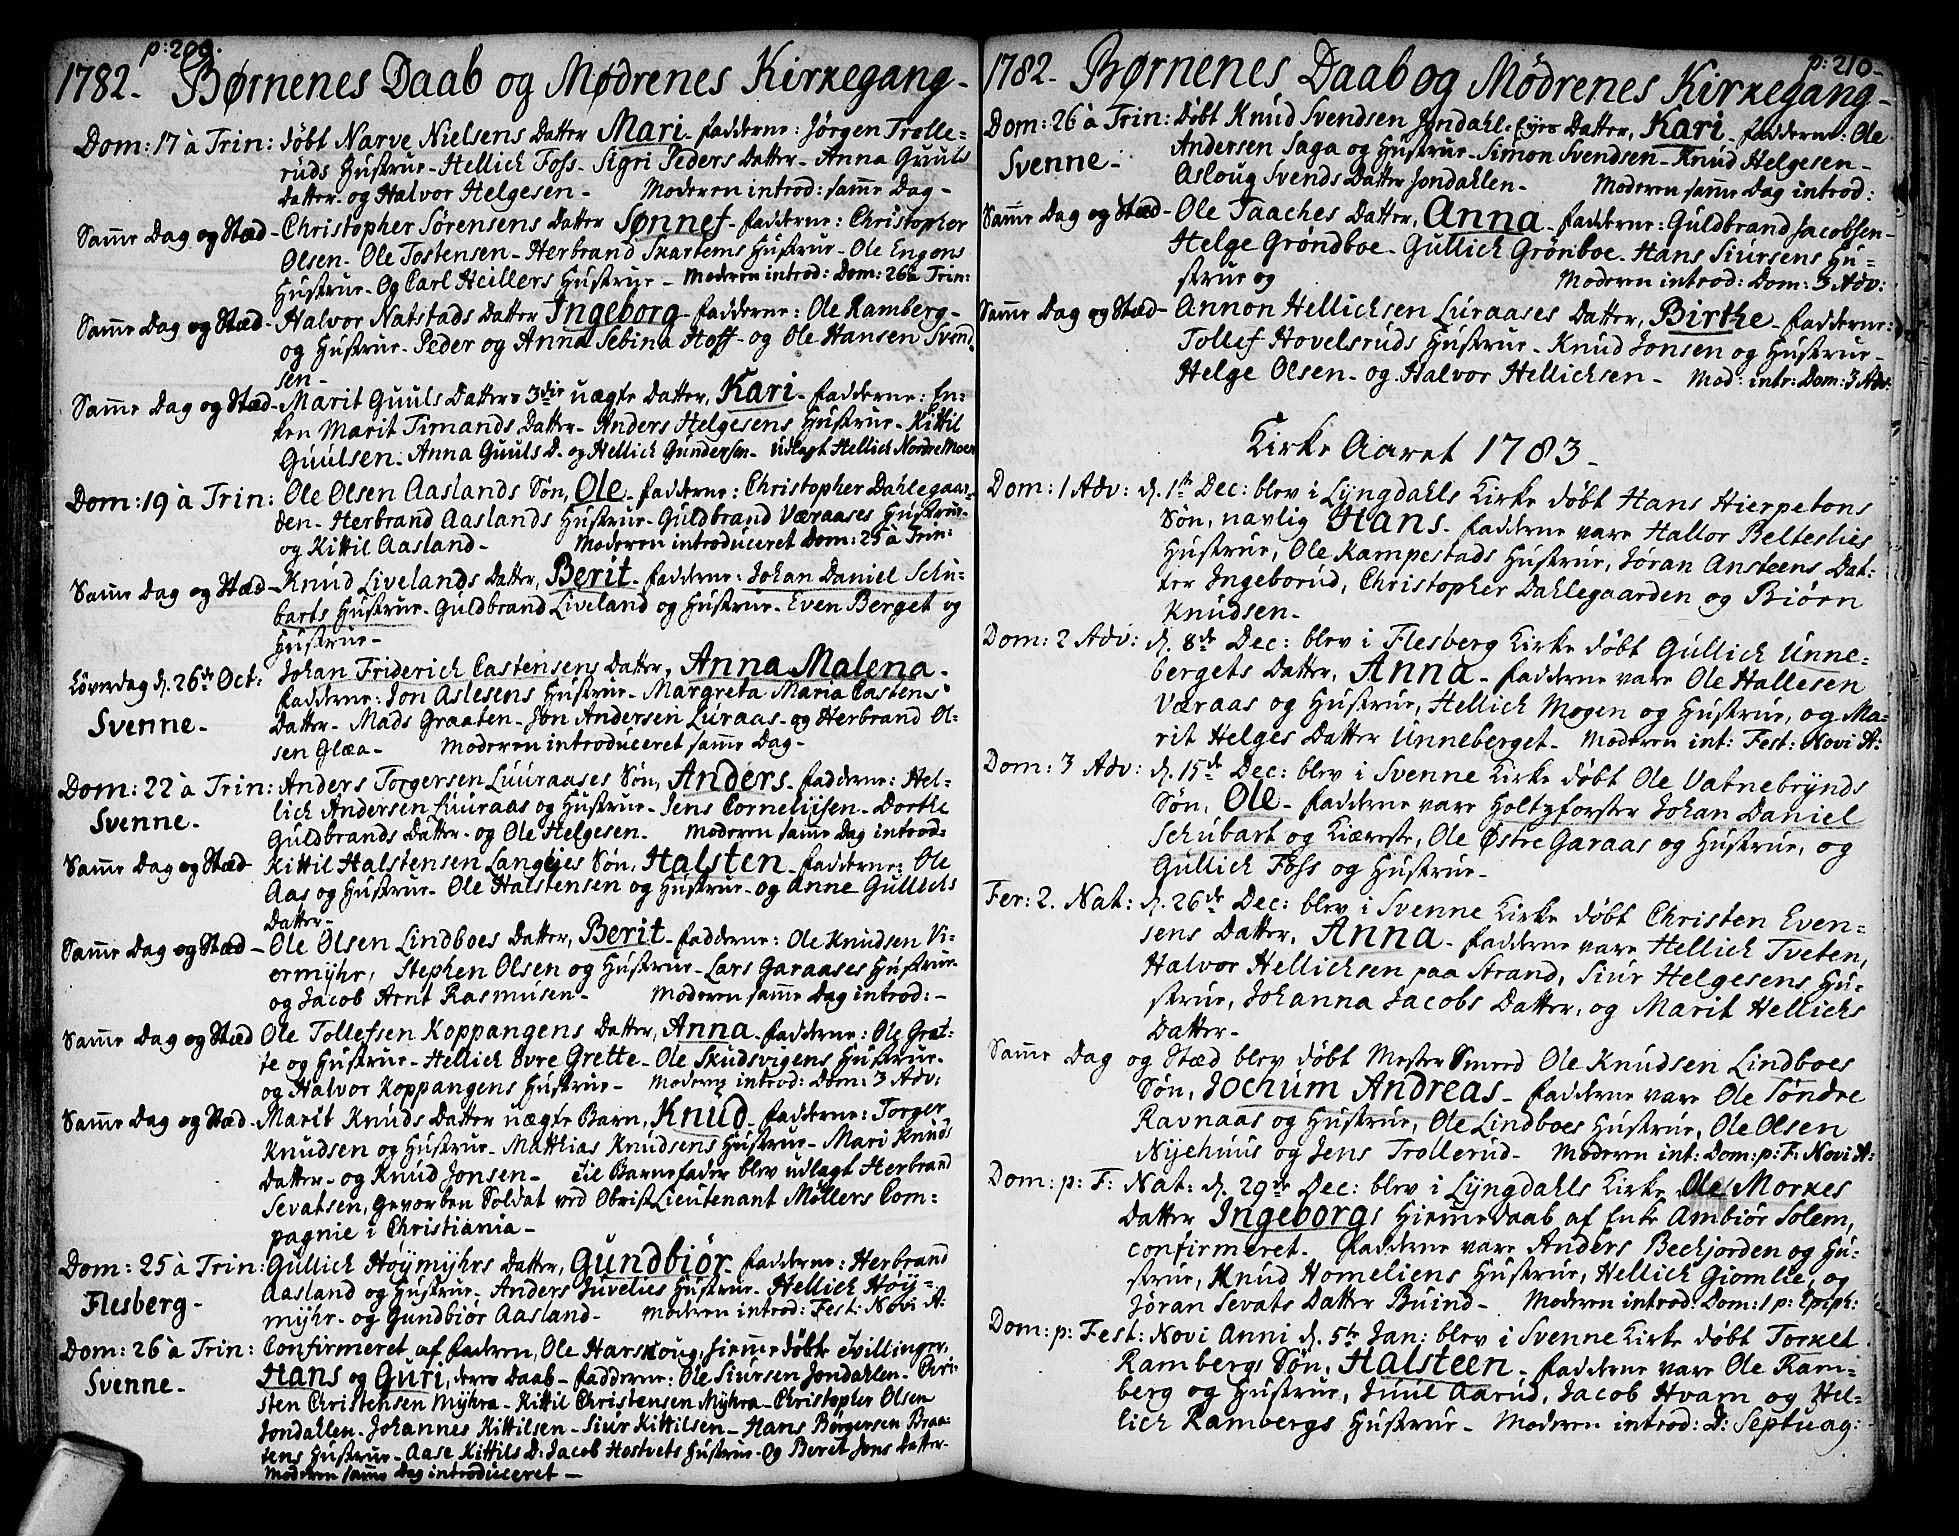 p: 209.
1782. Børnenes Daab og Mødrenes Kirkegang-
Dom: 17 à Trin: døbt Narve Nielsens Datter Mari- Fadderne: Jørgen Trolle=
ruds Hustrue- Hellich Foss- Sigri Peders Datter- Anna Guuls
Datter- og Halvor Helgesen- Moderen introd: samme Dag-
Samme Dag og Stæd- Christopher Sørensens Datter Sønnef- Fadderne: Christopher
Olsen- Ole Tostensen- Herbrand Skartems Hustrue- Ole Engens
Hustrue- Og Carl Heillers Hustrue- Moderen introd: Dom: 26 à Trin:
Samme Dag og Stæd- Halvor Natstads Datter Ingeborg- Fadderne: Ole Ramberg-
og Hustrue- Peder og Anna Sebina Hoff- og Ole Hansen Svend
sen-
Samme Dag og Stæd- Marit Guuls Datters 3die uægte Datter, Kari- Fadderne: En-
ken Marit Timands Datter- Anders Helgesens Hustrue- Kittil
Guulsen- Anna Guuls D- og Hellich Gundersen- Udlagt Hellich Nordre Moen
Dom: 19 à Trin: Ole Olsen Aaslands Søn, Ole- Fadderne: Christopher Dahlegaar-
den- Herbrand Aaslands Hustrue- Guldbrand Væraases Hustrue-
og Kittil Aasland- Moderen introduceret Dom: 25 à Trin:
Samme Dag og Stæd- Knud Livelands Datter, Berit- Fadderne: Johan Daniel Schu-
barts Hustrue- Guldbrand Liveland og Hustrue- Even Berget og
Hustrue-
Løverdag d. 26de Oct: Johan Friderich Castensens Datter, Anna Malena-
Svenne- Fadderne: Jon Aslesens Hustrue- Margreta Maria Castens
Datter- Mads Graaten- Jon Andersen Luraas- og Herbrand Ol-
sen Glæa- Moderen introduceret samme Dag-
Dom: 22 à Trin: Anders Torgersen Luuraases Søn, Anders- Fadderne: Hel-
Svenne- lich Andersen Luuraas og Hustrue- Jens Cornelijsen- Dorthe
Guldbrands Datter- og Ole Helgesen- Moderen samme Dag introd-
Samme Dag og Stæd Kittil Halstensen Langejes Søn, Halsten- Fadderne: Ole
Aas og Hustrue- Ole Halstensen og Hustrue- og Anne Gullichs
Datter-
Samme Dag og Stæd- Ole Olsen Lindboes Datter, Berit- Fadderne: Ole Knudsen Vi-
ermyhr, Stephen Olsen og Hustrue- Lars Garaases Hustrue-
og Jacob Arnt Rasmusen- Moderen samme Dag introd:-
Samme Dag og Stæd Ole Tollefsen Koppangens Datter, Anna- Fadderne: Ole Gret-
te og Hustrue- Hellich Øvre Grette- Ole Skudsvigens Hustrue-
og Halvor Koppangens Hustrue- Moderen introd: Dom: 3 Adv:
Samme Dag og Stæd- Marit Knuds Datter uægte Barn, Knud- Fadderne: Torger
Knudsen og Hustrue- Matthias Knudsens Hustrue- Mari Knuds
Datter- og Knud Jonsen- Til Barnefader blev udlagt Herbrand
Sevatsen, Gevorben Soldat ved Obrist Lieutenant Møllers Com-
pagnie i Christiania-
Dom: 25 à Trin: Gullich Høymyhrs Datter, Gundbiør- Fadderne: Herbrand
Flesberg- Aasland og Hustrue- Anders Juvelies Hustrue- Hellich Høy=
myhr- og Gundbiør Aasland- Moderen introd: Fest: Novi A:
Dom: 26 à Trin: Confirmeret af Faderen, Ole Harskoug, hiemmedøbte Tvillinger,
Svenne- Hans og Guri, deres Daab- Fadderne: Ole Siursen Jondahlen- Cri-
sten Christensen Myhra- Kittil Christensen Myhra- Christopher Olsen
Jondahlen- Johannes Kittilsen- Siur Kittilsen- Hans Børgersen Braa-
tens Hustrue- Aase Kittils D: Jacob Hostvets Hustrue- Og Berit Jons Datter-
Moderen samme Dag introduceret-
p: 210-
1782- Børnenes Daab og Mødrenes Kirkegang-
Dom: 26 à Trin: døbt Knud Svendsen Jondahls Eyes Datter, Kari- Fadderne: Ole
Svenne- Andersen Saga og Hustrue- Simon Svendsen- Knud Helgesen-
Asloug Svends Datter Jondahlen- Moderen samme Dag introd:
Samme Dag og Stæd- Ole Taaches Datter, Anna- Fadderne: Guldbrand Jacobsen-
Helge Grøndboe- Gullich Grønboe- Hans Siursens Hu-
strue og Moderen introd: Dom: 3 Adv:
Samme Dag og Stæd- Annon Hellichsen Luraases Datter, Birthe- Fadderne:
Tollef Hovelsruds Hustrue- Knud Jonsen og Hustrue-
Helge Olsen- og Halvor Hellichsen- Mod: intr: Dom: 3 Adv:
Kirke Aaret 1783-
Dom: 1 Adv: d. 1te Dec: blev i Lyngdahls Kirke døbt Hans Hierpetons
Søn, navlig Hans- Fadderne vare Hallor Belteslies
Hustrue, Ole Kampestads Hustrue, Jøran Ansteens Dat-
ter Ingeborud, Christopher Dahlegaarden og Biørn
Knudsen-
Dom: 2 Adv: d. 8de Dec: blev i Flesberg Kirke døbt Gullich Unne-
bergets Datter, Anna- Fadderne vare Ole Hallesen
Væraas og Hustrue, Hellich Mogen og Hustrue, og Ma-
rit Helges Datter Unneberget- Moderen int: Fest: Novi A:
Dom: 3 Adv: d. 15de Dec: blev i Svenne Kirke døbt Ole Vatnebrynds
Søn, Ole- Fadderne vare Holtzforster Johan Daniel
Schubart og Kiæreste, Ole Østre Garaas og Hustrue, og
Gullich Foss og Hustrue-
Fer: 2. Nat: d. 26de Dec: blev i Svenne Kirke døbt Christen Even-
sens Datter, Anna- Fadderne vare Hellich Tveten,
Halvor Hellichsen paa Strand, Siur Helgesens Hu-
strue, Johanna Jacobs Datter, og Marit Hellichs
Datter-
Samme Dag og Stæd blev døbt Mester Smed Ole Knudsen Lindboes
Søn, Jochum Andreas- Fadderne vare Ole Søndre
Ravnaas og Hustrue, Ole Lindboes Hustrue, Ole Olsen
Nyehuus og Jens Trollerud- Moderen int: Dom: p: F: Novi A:
Dom: p: F: Nat: d. 29de Dec: blev i Lyngdahls Kirke Ole Morkes
Datter Ingeborgs Hiemmedaab af Enke Ambiør Solem,
confirmeret. Fadderne vare Anders Beckjorden og Hu-
strue, Knud Homeliens Hustrue, Hellich Giomlie, og
Jøran Sevats Datter Buind- Moderen introd: Dom: 1 p: Epiph:
Dom: p: Fest: Novi Anni d. 5te Jan: blev i Svenne Kirke døbt Torkel
Rambergs Søn, Halsteen, Fadderne vare Ole Ram-
berg og Hustrue, Juul Aarud, Jacob Hvam og Hel-
lich Rambergs Hustrue- Moderen introd: D: Septuag: